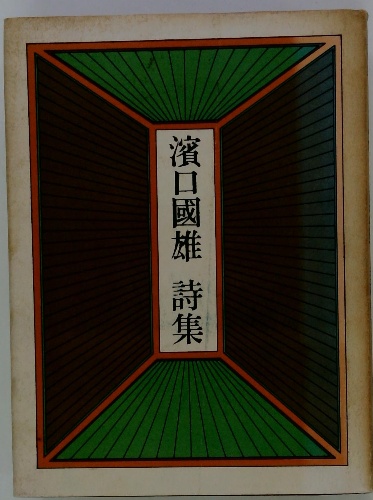 濱口國雄 詩集